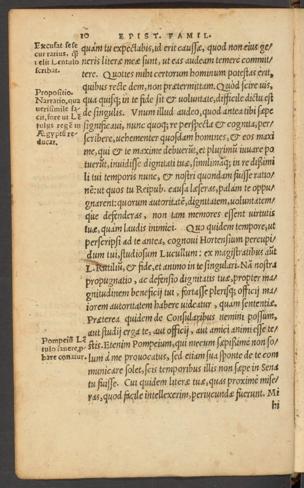 10 EPIST. FAMIL.
Excusat se se
cur rarius, qp
velit Lentulo
scribat.
quàm tu expectabis, id erit caussæ, quod non eius ge/
neris literæ meæ sunt, ut eas audeam temere committere.
Quoties mihi certorum hominum potestas erit,
quibus recte dem, non prætermittam. Quod scire uis,
Propositio.
Narratio, qua
ut in te fide sit & uoluntate, difficile dictu est
de singulis. Vnum illud audeo, quod antea tibi sæpe
significaui, nunc quoq; re perspecta & cognita, per/
scribere, uehementer quosdam homines, & eos maxi
me, qui & te maxime debuerūt, & plurimū iuuare po
tuerūt, inuidisse dignitati tuæ, simillimāq; in re dissimi
li tui temporis nunc, & nostri quondam fuisse ratio/
nē: ut quos tu Reipub. causa læseras, palàm te oppu/
gnarent: quorum autoritatē, dignitatem, uoluntatem/
que defenderas, non tam memores essent uirtutis
tuæ, quàm laudis inimici. Quo quidem tempore, ut
perscripsi ad te antea, cognoui Hortensium percupi/
dum tui, studiosum Lucullum: ex magistratibus aūt
L. Racilliū, & fide, et animo in te singulari. Nā nostra
propugnatio, ac defensio dignitatis tuæ, propter ma
gnitudinem beneficij tui, fortasse plerisq; officij ma/
iorem autoritatem habere uideatur, quàm sententiæ.
Præterea quidem de Consularibus nemini possum,
aut studij erga te, aut officij, aut amici animi esse te/
stis. Etenim Pompeium, qui mecum sæpissime non so/
Pompeiū Lē
tulo fauere, p
bare conatur.
lum à me prouocatus, sed etiam sua sponte de te com
municare solet, scis temporibus illis non sæpe in Sena
tu fuisse. Cui quidem literæ tuæ, quas proxime mise/
ras, quod facile intellexerim, periucundæ fuerunt. Mi
hi